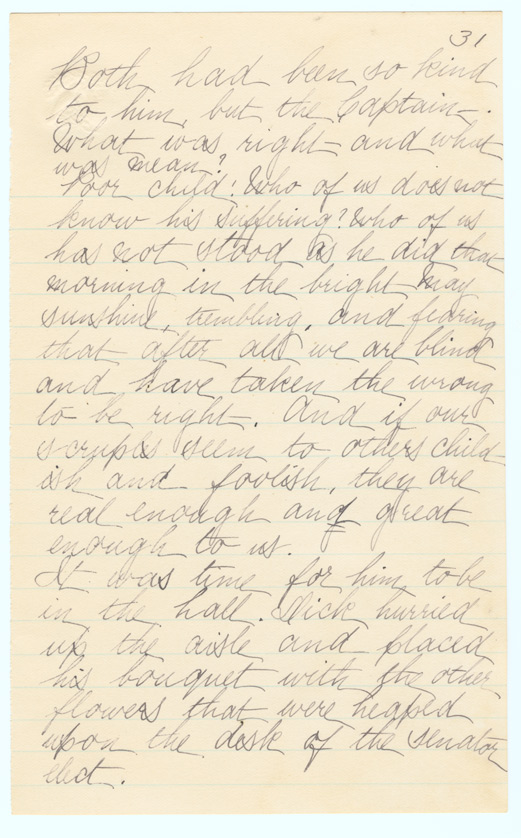 31
Both had been so kind
to him, but the Captain-.
What was right - and what
was mean?
Poor child! Who of us does not
know his suffering? Who of us
has not stood as he did that
morning in the bright May
sunshine, trembling, and fearing
that after all we are blind
and have taken the wrong
to be right. And if our
scruples seem to others child-
ish and foolish, they are
real enough and great
enough to us.
It was time for him to be
in the hall. Dick hurried
up the aisle and placed
his bouquet with the other
flowers that were heaped
upon the desk of the senator
elect.